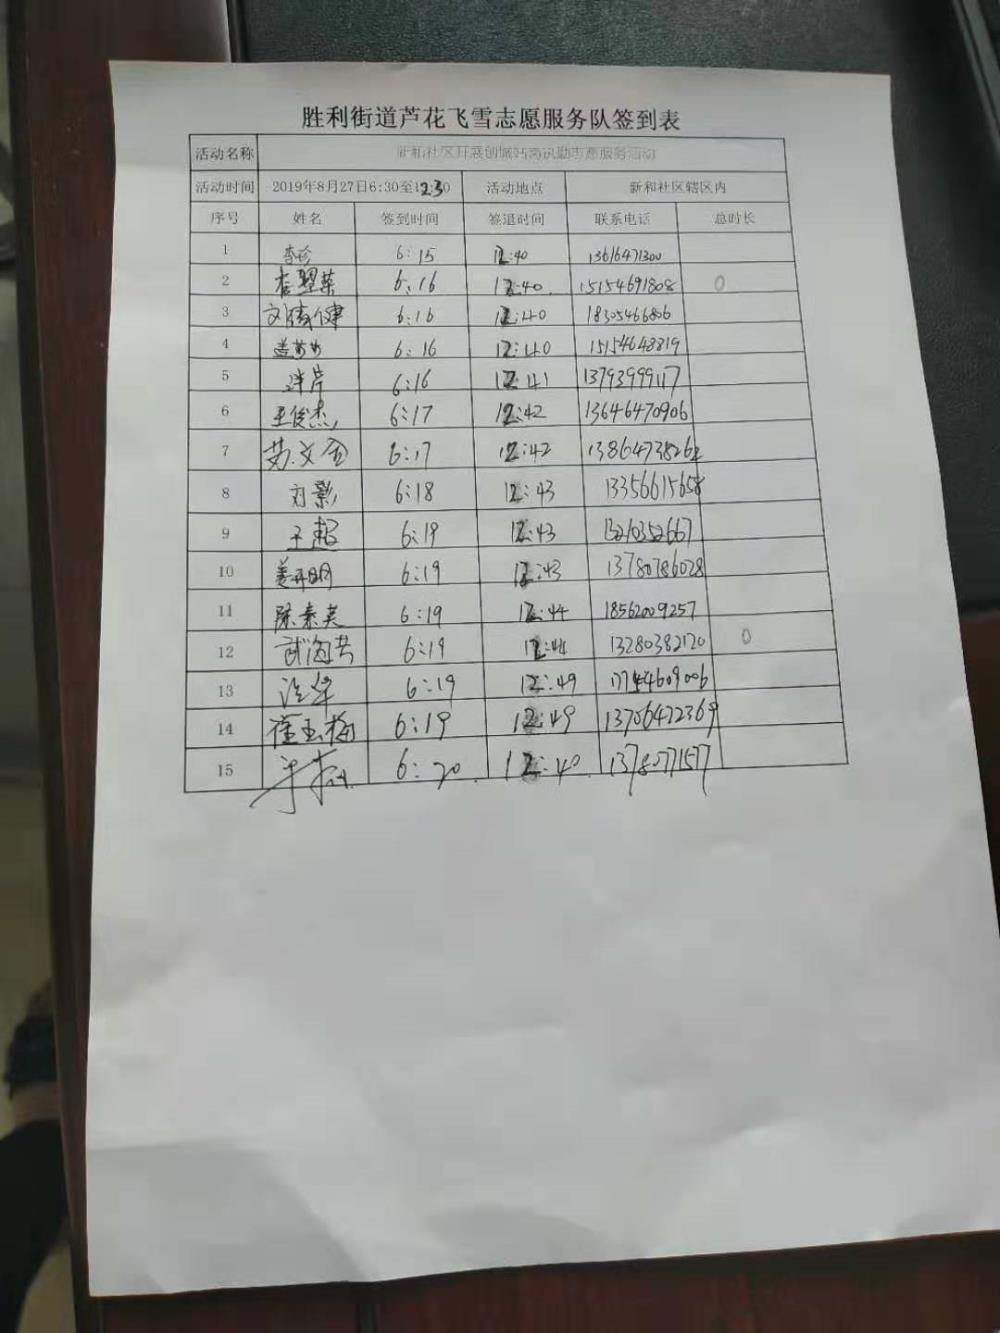 胜利街道芦花飞雪志愿服务队签到表
活动名称 新和社区开展创城站岗执勤志愿服务活动
活动时间 2019年8月27日6:30至12:30 活动地点 新和社区辖区内
序号 姓名 签到时间 签退时间 联系电话 总时长
1 李珍 6:15 12:40 13616471300
2 6:16 12:40 15154691808 0
3 6:16 12:40 18305466806
4 6:16 12:40 15154648819
5 6:16 12:41 13793999117
6 王俊杰 6:17 12:42 13646470906
7 6:17 12:42 13864738262
8 刘影 6:18 12:43 13356615658
9 王超 6:19 12:43
10 姜开明 6:19 12:43 13780786028
11 陈素英 6:19 12:44 18562009257
12 武海芸 6:19 12:44 13280382120 0
13 6:19 12:49 17754609006
14 崔玉梅 6:19 12:49 13706472369
15 6:20 12:40 13780771577